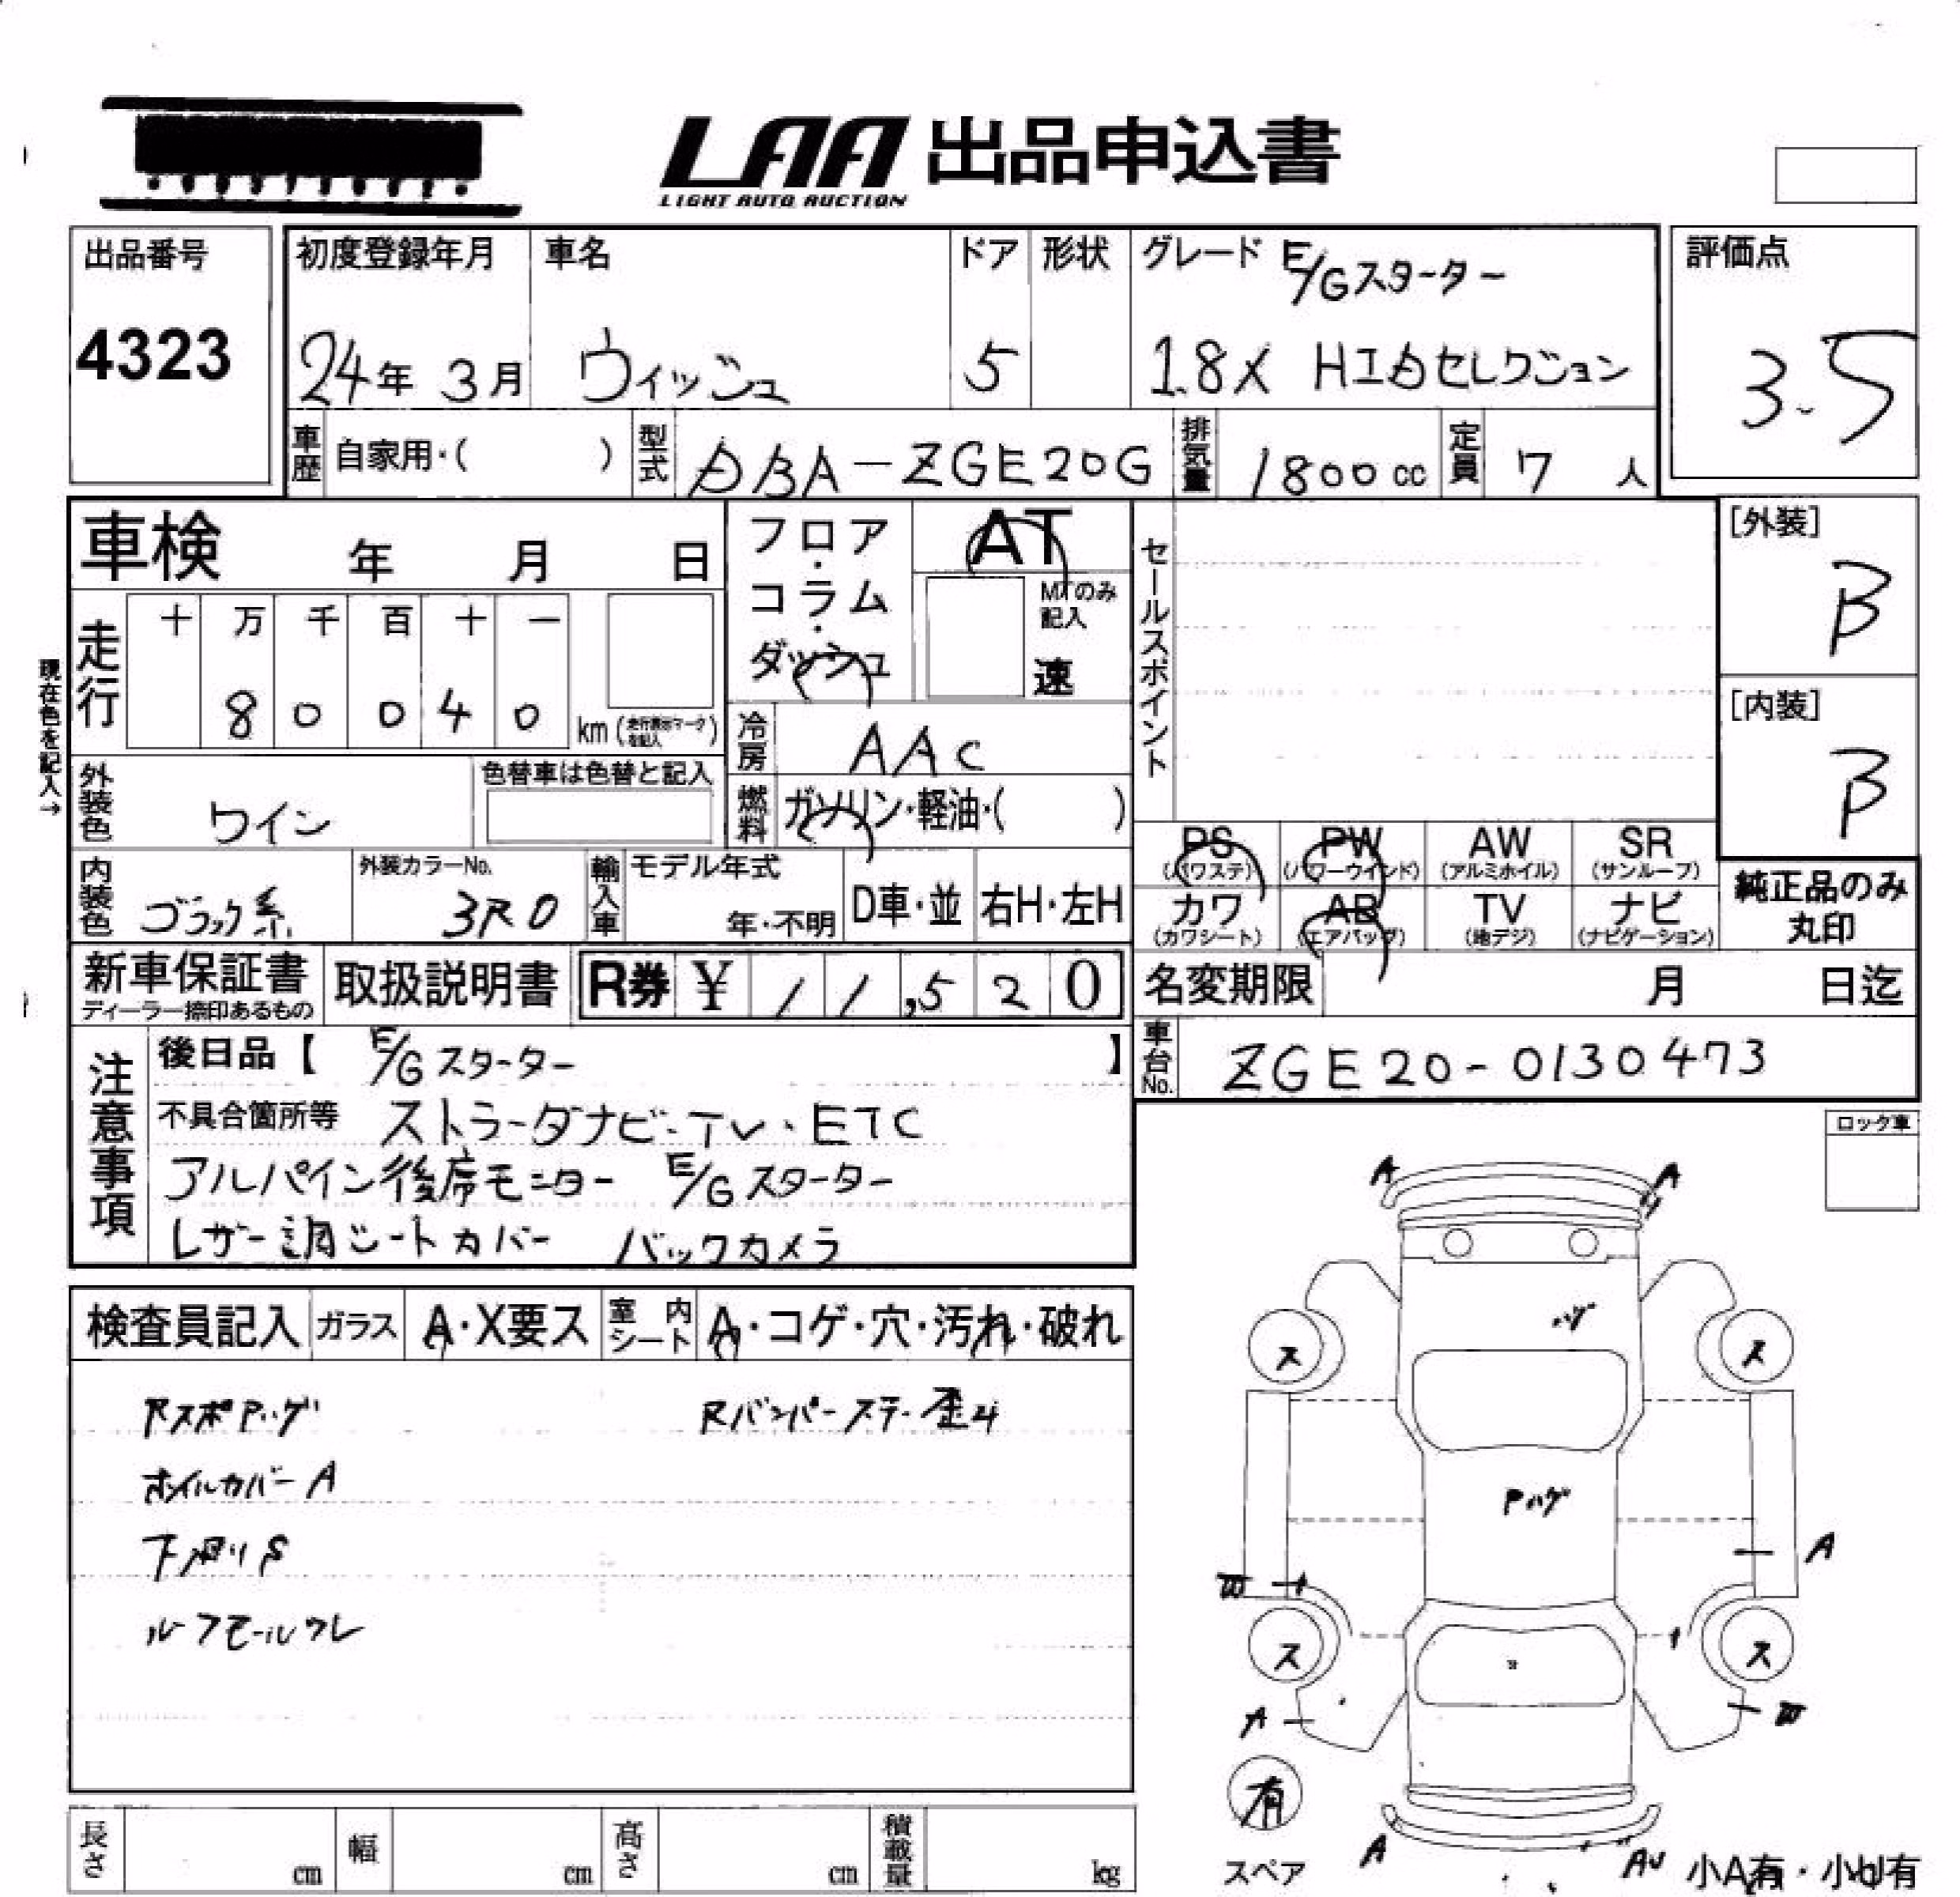 LAA 出品申込書
LIGHT AUTO AUCTION
出品番号
4323
初度登録年月
24年 3月
車名
ウィッシュ
ドア
5
形状
グレード E/Gスターター
1.8X HIDセレクション
評価点
3.5
車歴 自家用・( )
型式 DBA-ZGE20G
排気量 1800cc
定員 7人
車検 年 月 日
フロア・コラム・ダッシュ
AT
MTのみ記入
速
セールスポイント
[外装]
B
[内装]
B
現在色を記入→
走行
十 万 千 百 十 一
8 0 0 4 0 km (走行表示マークを記入)
冷房 AAC
外装色 ワイン
色替車は色替と記入
燃料 ガソリン・軽油・( )
PS (パワステ)
PW (パワーウインド)
AW (アルミホイル)
SR (サンルーフ)
カワ (カワシート)
AB (エアバッグ)
TV (地デジ)
ナビ (ナビゲーション)
純正品のみ丸印
内装色 ブラック系
外装カラーNo.
3R0
輸入車
モデル年式
年・不明
D車・並
右H・左H
新車保証書
ディーラー捺印あるもの
取扱説明書
R券 ¥11,520
名変期限 月 日迄
車台No. ZGE20-0130473
注意事項
後日品【 E/Gスターター 】
不具合箇所等 ストラーダナビ・TV・ETC
アルパイン後席モニター E/Gスターター
レザー調シートカバー バックカメラ
ロック車
検査員記入
ガラス A・X要ス
室内シート A・コゲ・穴・汚れ・破れ
RスポPハゲ
Rバンパーステー歪み
ホイルカバーA
下廻りS
ルーフモールワレ
A
A
ハゲ
ス
ス
Pハゲ
A
W
ス
ス
A
W
有
スペア
A
AU
小A有・小U有
長さ cm
幅 cm
高さ cm
積載量 kg